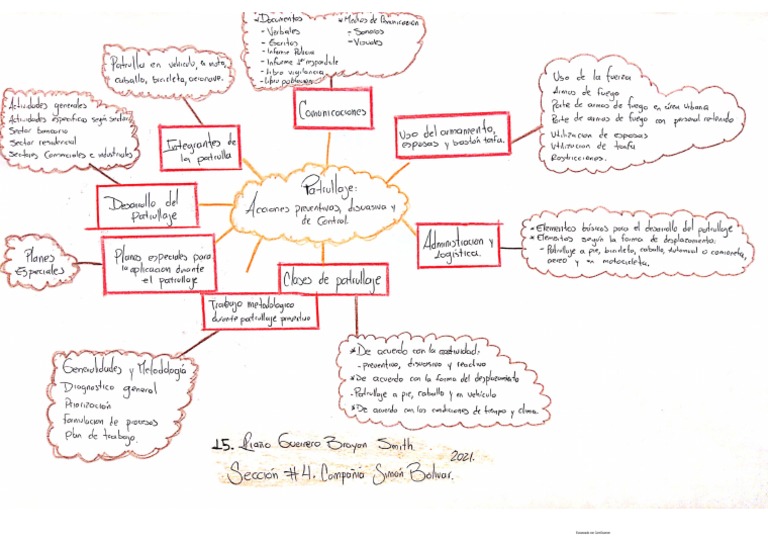 * Documentos
- Verbales
- Escritos
- Informe Policia
- Informe 1º respondiente
- Libro vigilancia
- Libro población
* Medios de Comunicación
- Sonoros
- Visuales
Comunicaciones
Patrullas en vehículo, a moto,
caballo, bicicleta, aeronave.
Integrantes de
la patrulla
Actividades generales
Actividades especificas según sector
Sector bancario
Sector residencial
Sectores Comerciales e industriales
Desarrollo del
Patrullaje
Planes
Especiales
Planes especiales para
la aplicación durante
el patrullaje
Patrullaje:
Acciones preventivas, disuasiva y
de Control.
Uso del armamento,
esposas y bastón tonfa.
Uso de la fuerza
Armas de fuego
Porte de armas de fuego en área Urbana
Porte de armas de fuego con personal retenido
Utilizacion de esposas
Utilizacion de tonfa
Restricciones.
Administracion y
logística.
- Elementos básicos para el desarrollo del patrullaje
* Elementos según la forma de desplazamiento.
- Patrullaje a pie, bicicleta, caballo, automovil o camioneta,
aereo y en motocicleta.
Clases de patrullaje
* De acuerdo con la actividad:
- preventivo, disuasivo y reactivo
* De acuerdo con la forma del desplazamiento
- Patrullaje a pie, caballo y en vehículo
* De acuerdo con las condiciones de tiempo y clima.
Trabajo metodologico
durante patrullaje preventivo
Generalidades y Metodología
Diagnostico general
Priorización
Formulacion de procesos
Plan de trabajo.
15. Riaño Guerrero Brayan Smith.
2021.
Sección #4. Compañia Simón Bolivar.